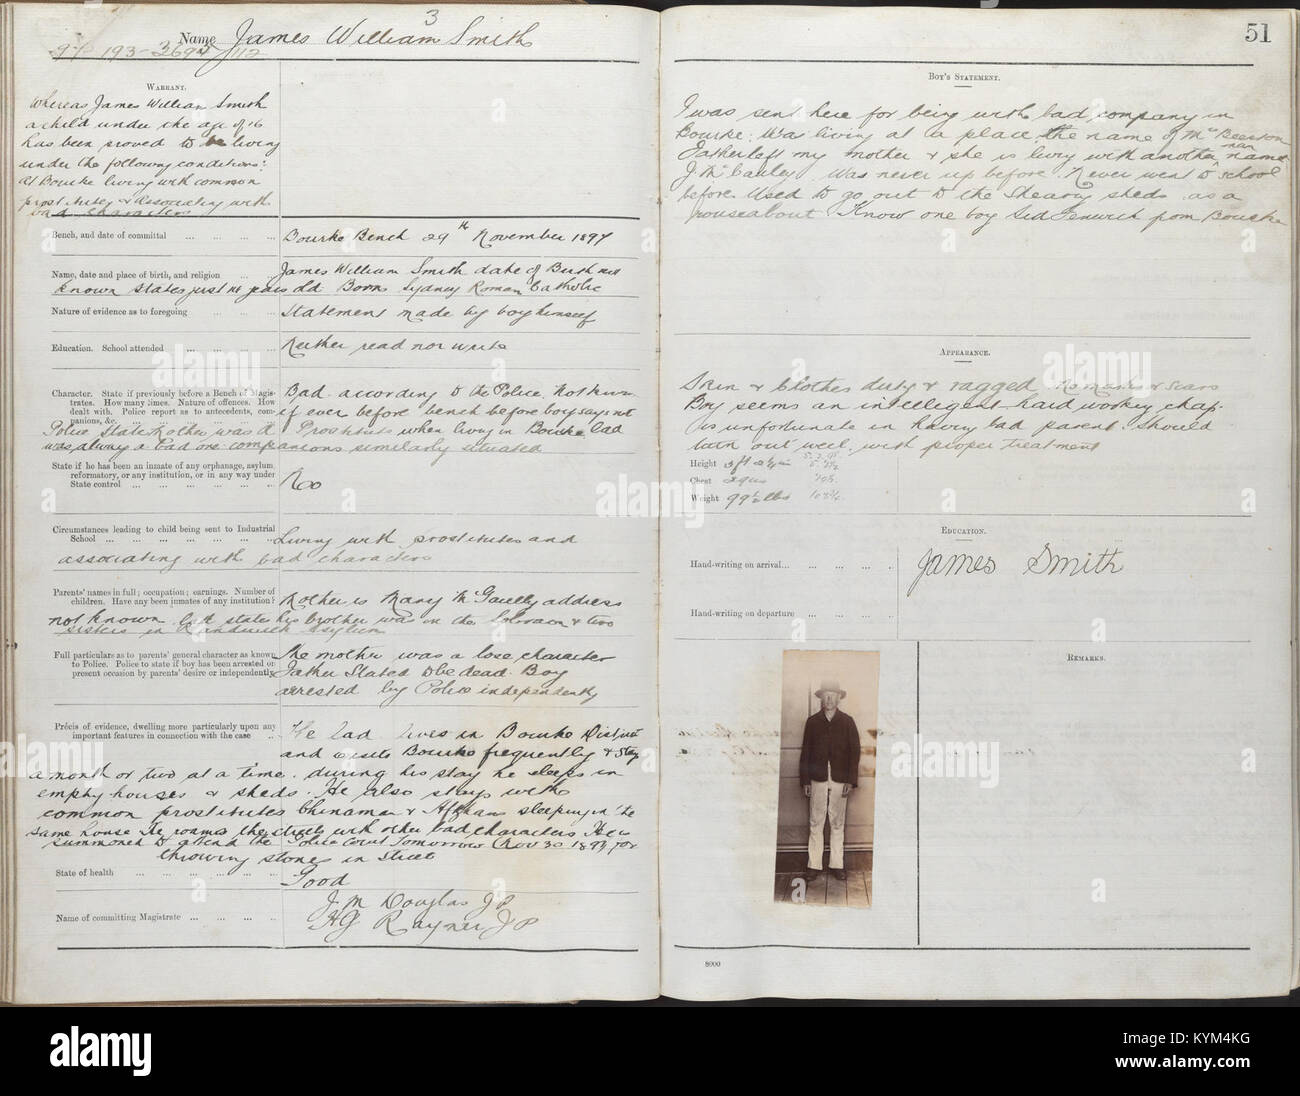 3
Name James William Smith
97-193-3694
WARRANT.
Whereas James William Smith
a child under the age of 16
has been proved to be living
under the following conditions:
at Bourke living with common
prostitutes & associating with
bad characters
Bench, and date of committal ... ... ... ... Bourke Bench 29th November 1897
Name, date and place of birth, and religion ... James William Smith date of Birth not
known states just years old Born Sydney Roman Catholic
Nature of evidence as to foregoing ... ... ... Statement made by boy himself
Education. School attended ... ... ... ... Neither read nor write
Character. State if previously before a Bench of Magis-
trates. How many times. Nature of offences. How
dealt with. Police report as to antecedents, com-
panions, &c. ... ... ... ...
Bad according to the Police. Not known
if ever before bench before boy says not
Police State Mother was a Prostitute when living in Bourke lad
was always a bad one companions similarly situated
State if he has been an inmate of any orphanage, asylum
reformatory, or any institution, or in any way under
State control ... ... ... ... ... ... No
Circumstances leading to child being sent to Industrial
School ... ... ... ... ... ... ... Living with prostitutes and
associating with bad characters
Parents' names in full; occupation; earnings. Number of
children. Have any been inmates of any institution?
Mother is Mary address
not known. lad states his brother was in the & two
sisters in Randwick Asylum
Full particulars as to parents' general character as known
to Police. Police to state if boy has been arrested on
present occasion by parents' desire or independently
The mother was a lose character
Father Stated to be dead. Boy
arrested by Police independently
Précis of evidence, dwelling more particularly upon any
important features in connection with the case ..
The lad lives in Bourke District
and visits Bourke frequently & stay
a month or two at a time. during his stay he sleeps in
empty houses & sheds. He also stays with
common prostitutes Chinaman & Afghans sleeping in the
same house He roams the streets with other bad characters He is
summoned to attend the Police Court Tomorrow (Nov 30 1897) for
throwing stones in Street
State of health ... ... ... ... ... ... Good
Name of committing Magistrate ... ... ... ...
J. M Douglas JP
HG Rayner JP
51
BOY'S STATEMENT.
I was sent here for being with bad company in
Bourke. Was living at a place the name of
Father left my mother & she is living with another man name
J. McCauley. Was never up before. Never went to school
before. Used to go out to the Shearing sheds as a
rouseabout. Know one boy Sid Fenwick from Bourke
APPEARANCE.
Skin & Clothes dirty & ragged. No marks or scars
Boy seems an intelligent hard working chap.
is unfortunate in having bad parent. Should
turn out well, with proper treatment
Height
Chest 29ins
Weight 99½ lbs
EDUCATION.
Hand-writing on arrival... ... ... ... James Smith
Hand-writing on departure ... ... ... ..
REMARKS.
8000
alamy
Image ID: KYM4KG
www.alamy.com